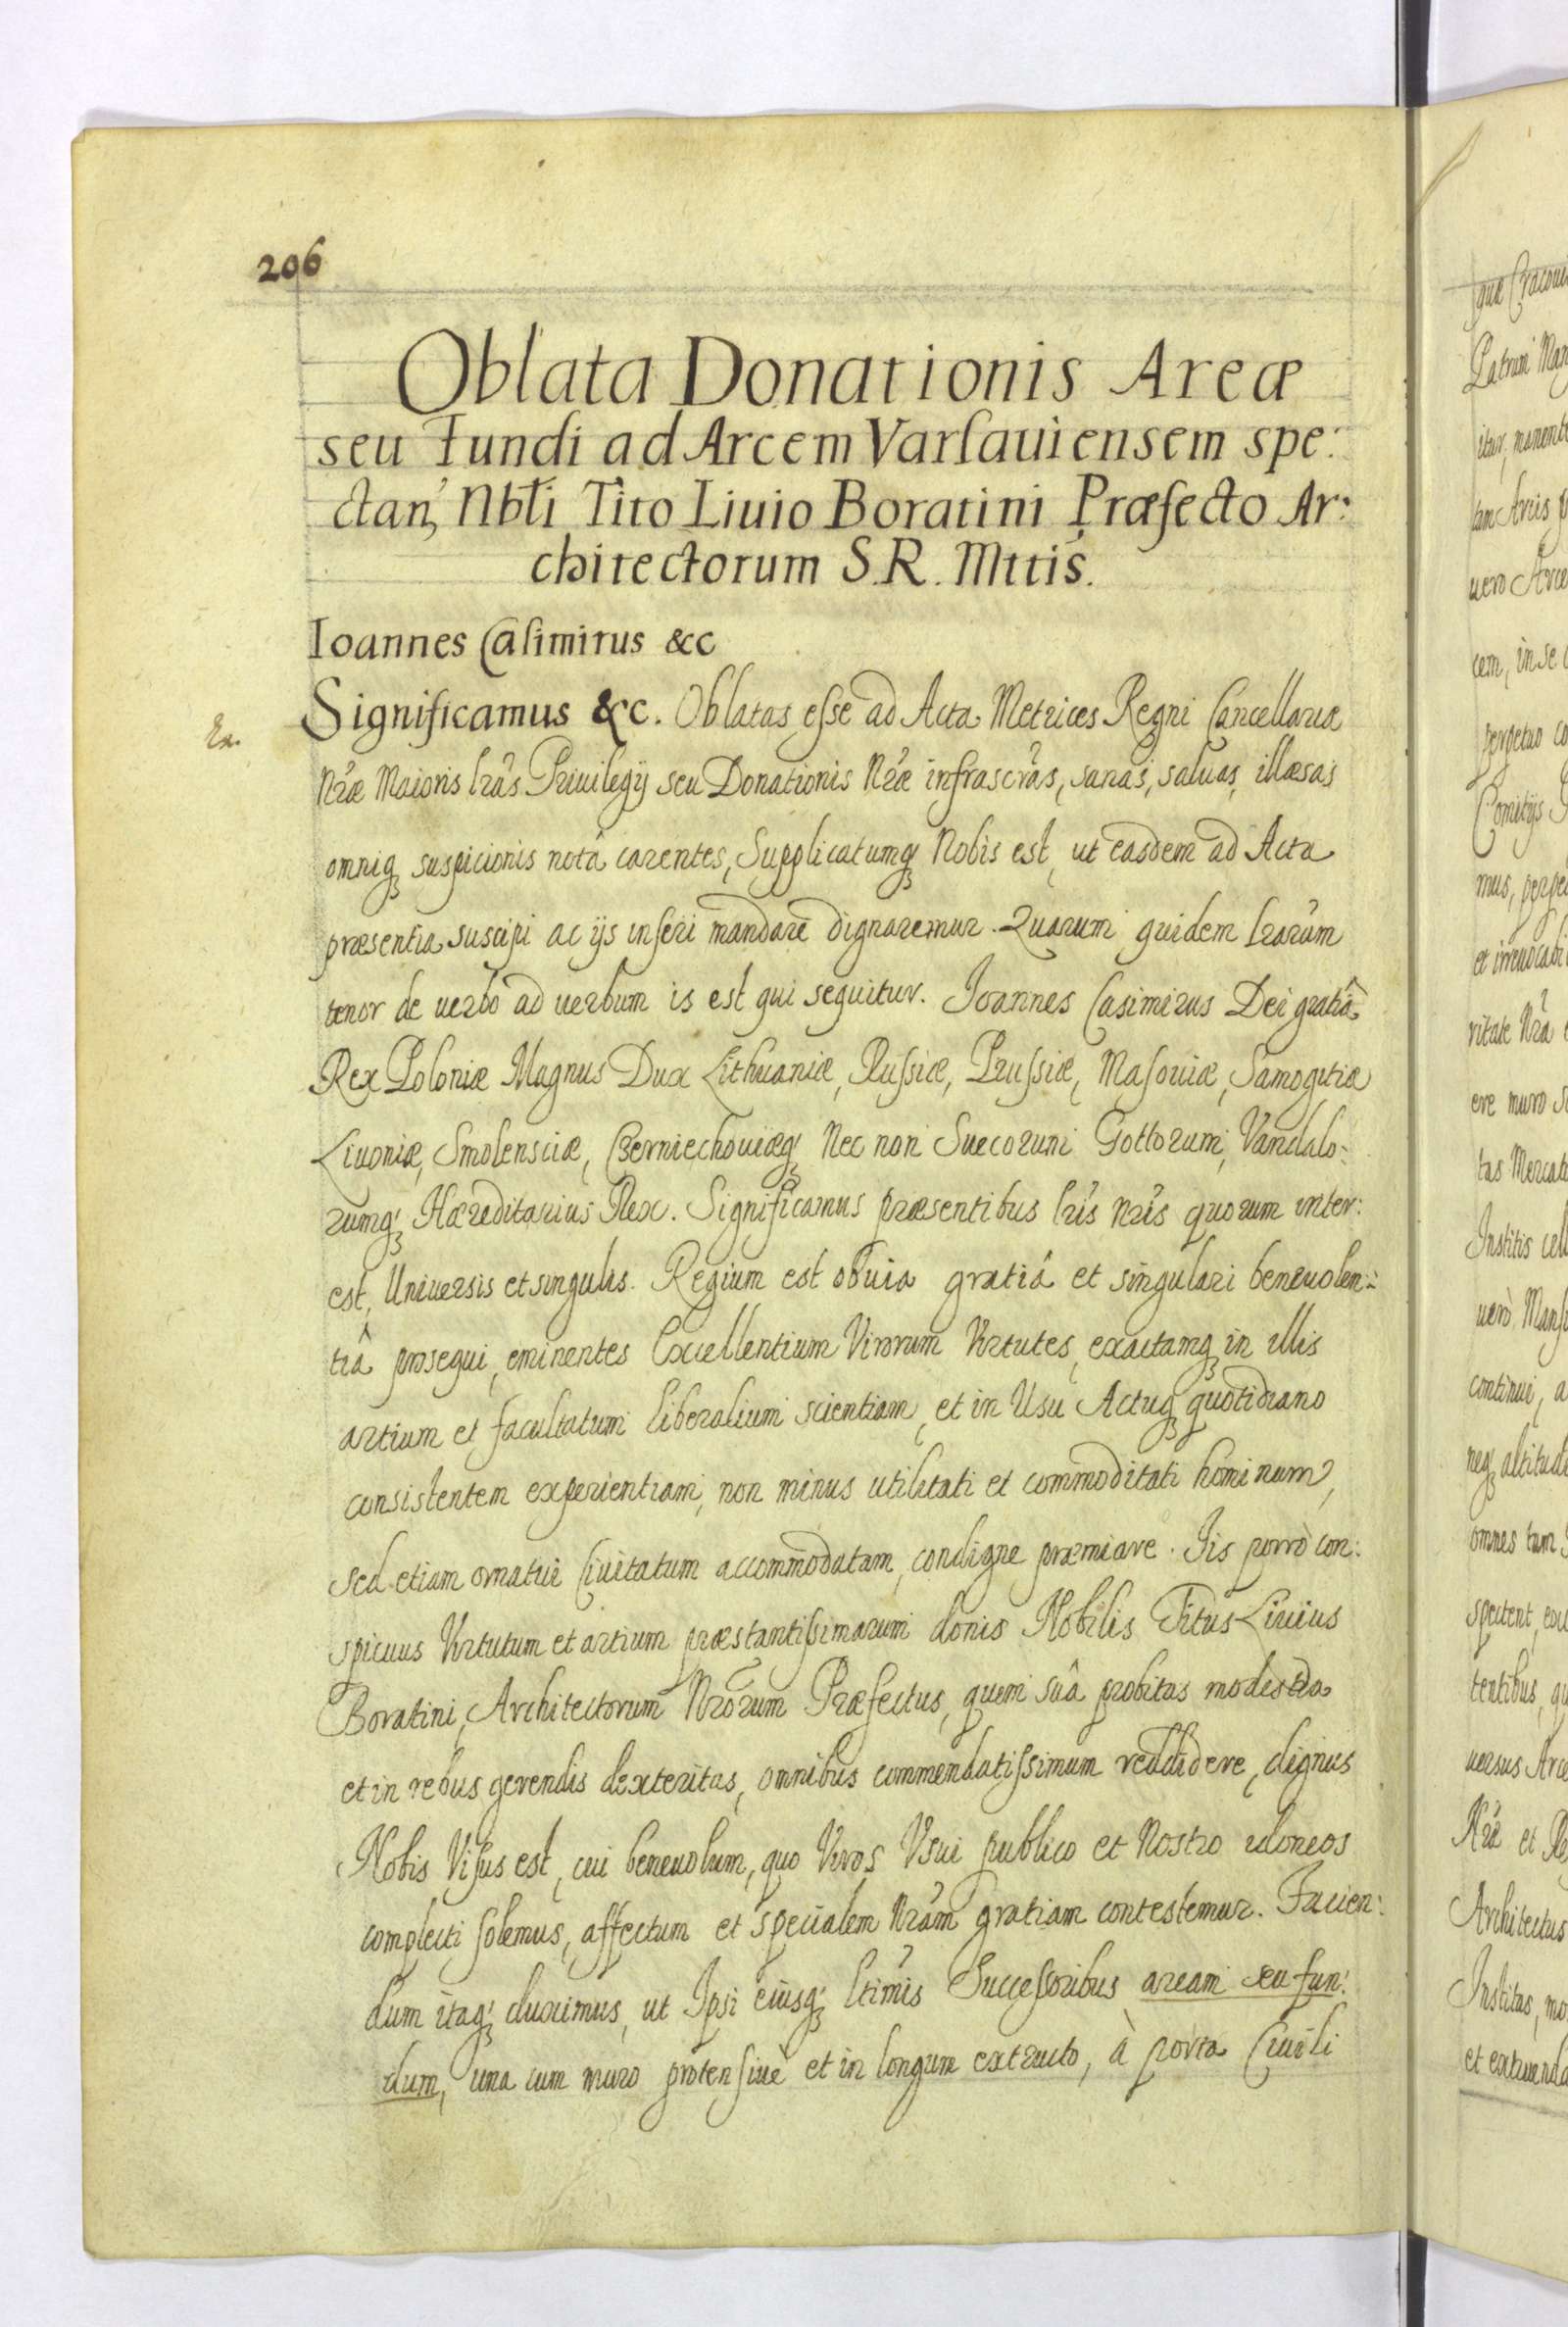 206
Oblata Donationis Areæ
seu Fundi ad Arcem Varsauiensem spe:
ctan, Nbli Tito Liuio Boratini Præfecto Ar:
chitectorum S.R. Mttis.
Ioannes Casimirus &c
Significamus &c. Oblatas esse ad Acta Metrices Regni Cancellariæ
Nræ Maioris lras Priuilegij seu Donationis Nræ infrascras, sanas, saluas, illæsas
omniq suspicionis notâ carentes, Supplicatumq Nobis est, ut easdem ad Acta
præsentia suscipi ac ijs inseri mandare dignaremur. Quarum quidem lrarum
tenor de uerbo ad uerbum is est qui sequitur. Ioannes Casimirus Dei gratiâ
Rex Poloniæ Magnus Dux Lithuaniæ, Russiæ, Prussiæ, Masouiæ, Samogitiæ
Liuoniæ, Smolensciæ, Czerniechouiæq, Nec non Suecorum Gottorum, Vandalo:
rumq, Hæreditarius Rex. Significamus præsentibus lris nris quorum inter:
est, Uniuersis et singulis. Regium est obuia gratiâ et singulari beneuolen:
tiâ prosequi, eminentes Excellentium Virorum Virtutes, exactamq in illis
artium et facultatum liberalium scientiam, et in Usu Actuq quotidiano
consistentem experientiam, non minus utilitati et commoditati hominum,
sed etiam ornatui Ciuitatum accommodatam, condigne præmiare. Iis porrò con:
spicuus Virtutum et artium præstantissimarum donis Nobilis Titus Liuius
Boratini, Architectorum Nrorum Præfectus, quem suâ probitas modestia
et in rebus gerendis dexteritas, omnibus commendatissimum reddidere, dignus
Nobis Visus est, cui beneuolum, quo Viros Usui publico et Nostro idoneos
complecti solemus, affectum et specialem Nram gratiam contestemur. Facien:
dum itaq duximus, ut Ipsi eiusq, ltimis Successoribus aream seu fun:
dum, una cum muro protensiuè et in longum extructo, à porta Ciuili